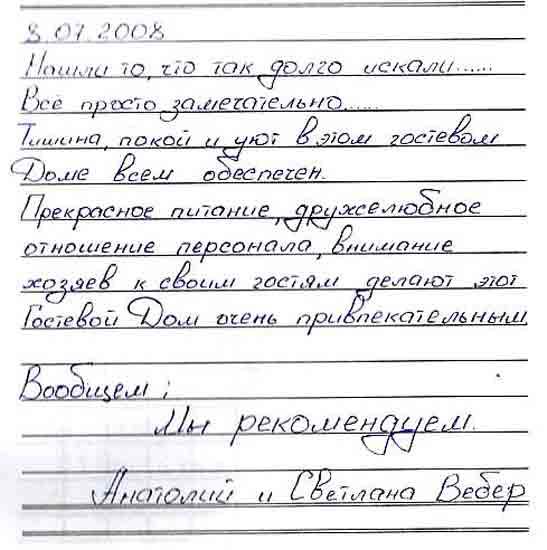 8.07.2008
Нашли то, что так долго искали......
Всё просто замечательно......
Тишина, покой и уют в этом гостевом
Доме всем обеспечен.
Прекрасное питание, дружелюбное
отношение персонала, внимание
хозяев к своим гостям делают этот
Гостевой Дом очень привлекательным
Вообщем;
Мы рекомендуем.
Анатолий и Светлана Вебер